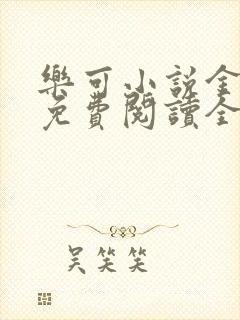 樂可小說全
免費閱讀全
吳笑笑